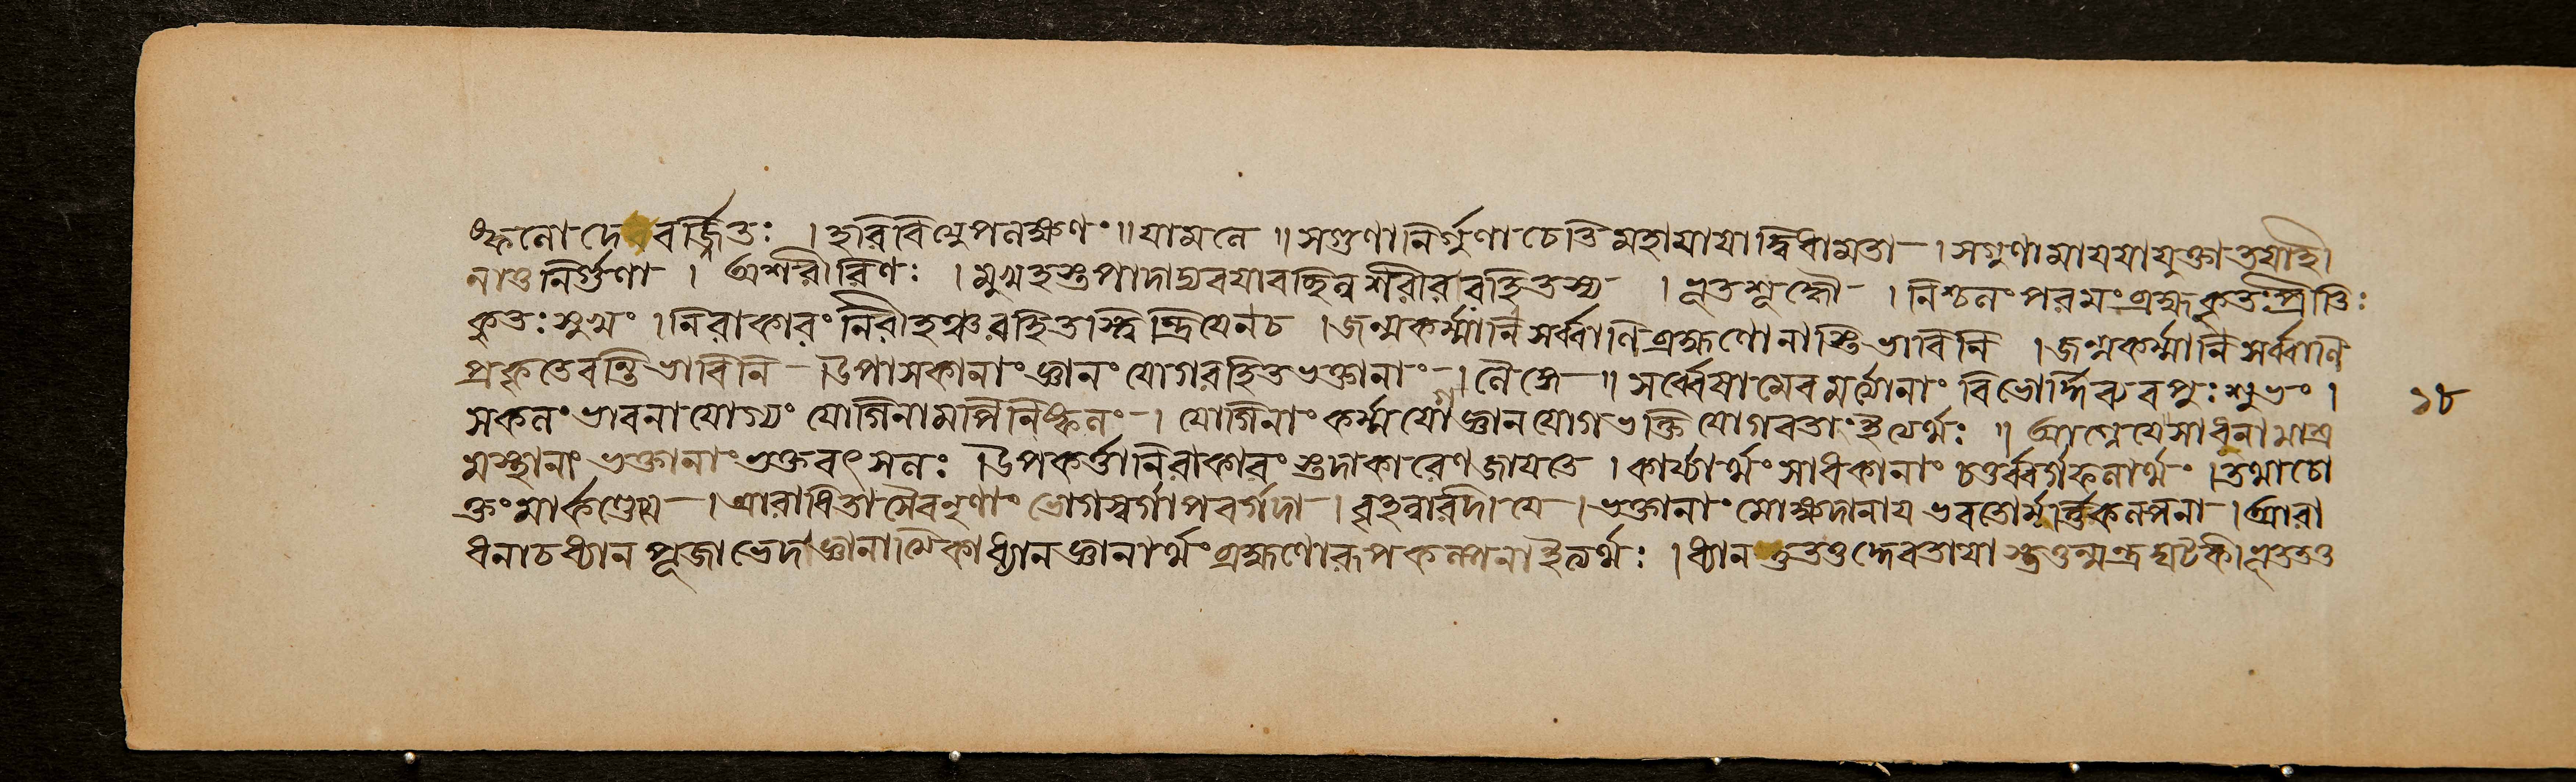 ষ্কলো দেববর্জ্জিতঃ । হরিবিত্যুপলক্ষণং ॥ যামলে ॥ সগুণা নির্গুণা চেতি মহামায়া দ্বিধামতা । সগুণা মায়য়া যুক্তা তয়া হী
নাতু নির্গুণা । অশরীরিণঃ । মুখহস্তপাদাদ্যবয়বাবচ্ছিন্ন শরীররহিতস্য । শ্রুতিশ্চ । নিশ্চলং পরমং ব্রহ্ম কুতঃ প্রীতিঃ
কুতঃ সুখং । নিরাকারং নিরীহঞ্চ রহিতস্ত্বিন্দ্রিয়েন চ । জন্মকর্ম্মানি সর্ব্বাণি ব্রহ্মণো নাস্তি ভাবিনি । জন্মকর্ম্মানি সর্ব্বাণি
প্রকৃতেবস্তি ভাবিনি । উপাসকানাং জ্ঞানং যোগরহিত ভক্তানাং । লৈঙ্গে ॥ সর্ব্বেষামেব মর্ত্যানাং বিভোর্দ্দিব্যবপুঃ শুভং ।
সকলং ভাবনা যোগ্যং যোগিনামপি নিষ্কলং । যোগিনাং কর্ম্মযোগ জ্ঞানযোগ ভক্তি যোগবতাং ইত্যর্থঃ ॥ আগ্নেয়ে সাধুনামাশ্র
মস্থানাং ভক্তানাং ভক্তবৎসলঃ । উপকর্ত্তা নিরাকারং স্তদাকারেণ জায়তে । কার্য্যার্থং সাধকানাং চতুর্ব্বর্গফলার্থং । তথাচো
ক্তং মার্কণ্ডেয়ে । আরাধিতা সৈব নৃণাং ভোগস্বর্গাপবর্গদা । বৃহন্নারদীয়ে । ভক্তানাং মোক্ষদানায় ভবতো মূর্ত্তিকল্পনা । আরা
ধনাচ ধ্যান পূজা ভেদা জ্ঞানাত্মিকা ধ্যান জ্ঞানার্থং ব্রহ্মণো রূপকল্পনা ইত্যর্থঃ । ধ্যানন্তু তত্তদ্দেবতায়া
১৮